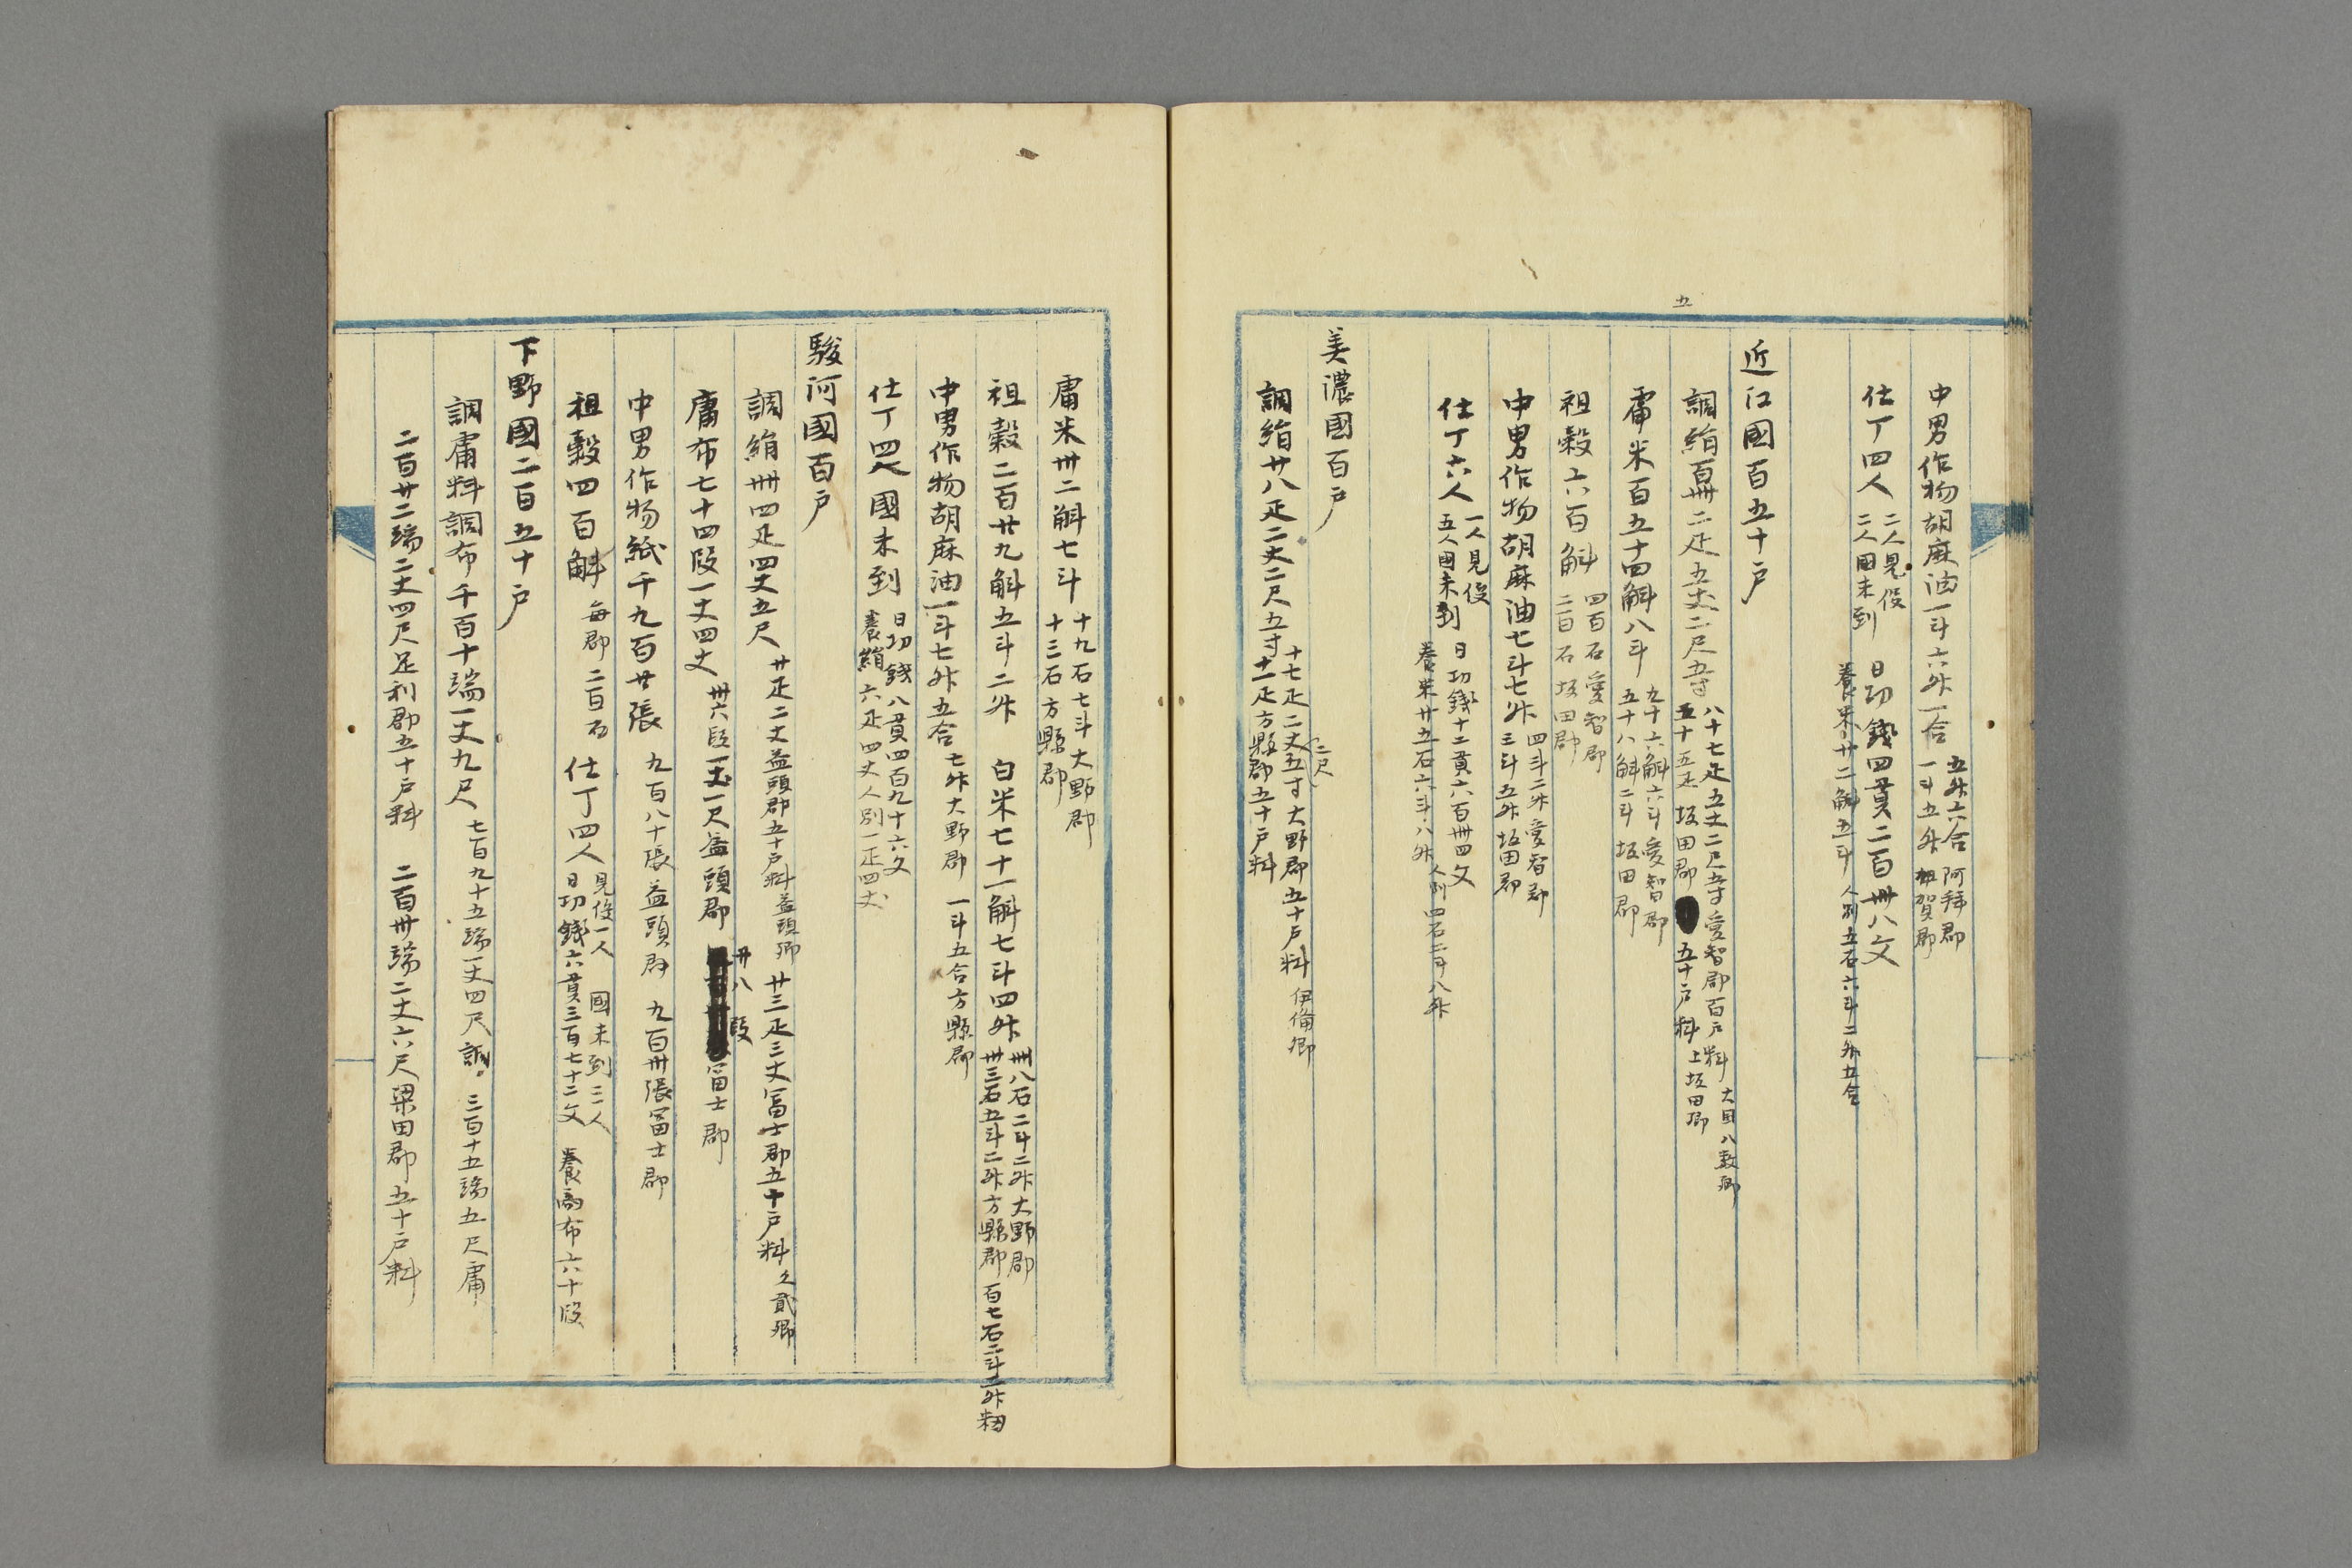 中男作物胡麻油一斗六升一合 五升六合 阿拜郡
一斗五升 郡賀郡
仕丁四人 二人見役
二人國未到
日功錢四貫二百卌八文
養米廿二斛五斗 人別五石六斗二升五合
五
近江國百五十戸
調絹百卌二疋五丈二尺五寸 八十七疋五丈二尺五寸愛智郡百戸料 大国八敷郷
五十五疋 坂田郡 五十戸料 上坂田郷
庸米百五十四斛八斗 九十六斛六斗愛智郡
五十八斛二斗 坂田郡
祖穀六百斛 四百石愛智郡
二百石坂田郡
中男作物胡麻油七斗七升 四斗二升愛智郡
三斗五升坂田郡
仕丁六人 一人見役
五人國未到
日功錢十二貫六百卌四文
養米廿五石六斗八升 人別四石二斗八升
美濃國百戸
調絹廿八疋二丈二尺五寸 十七疋二丈二尺五寸大野郡五十戸料 伊倫郷
十一疋方縣郡五十戸料
庸米卅二斛七斗 十九石七斗大野郡
十三石方縣郡
祖穀二百廿九斛五斗二升 白米七十一斛七斗四升 卌八石二斗二升大野郡
卅三石五斗二升方縣郡 百七石二斗一升籾
中男作物胡麻油一斗七升五合 七升大野郡 一斗五合方縣郡
仕丁四人 國未到 日功錢八貫四百九十六文
養絹六疋四丈人別一疋四丈
駿河國百戸
調絹卌四疋四丈五尺 廿疋二丈益頭郡五十戸料益頭郷 廿三疋三丈冨士郡五十戸料久貳郷
庸布七十四段一丈四丈 卅六段一丈一尺益頭郡 卅八段冨士郡
中男作物紙千九百廿張 九百八十張益頭郡 九百卌張冨士郡
祖穀四百斛 毎郡二百石 仕丁四人 見役一人 國未到三人
日功錢六貫三百七十二文 養商布六十段
下野國二百五十戸
調庸料調布千百十端一丈九尺 七百九十五端一丈四尺調。三百十五端五尺庸
二百廿二端二丈四尺足利郡五十戸料 二百卅端二丈六尺梁田郡五十戸料